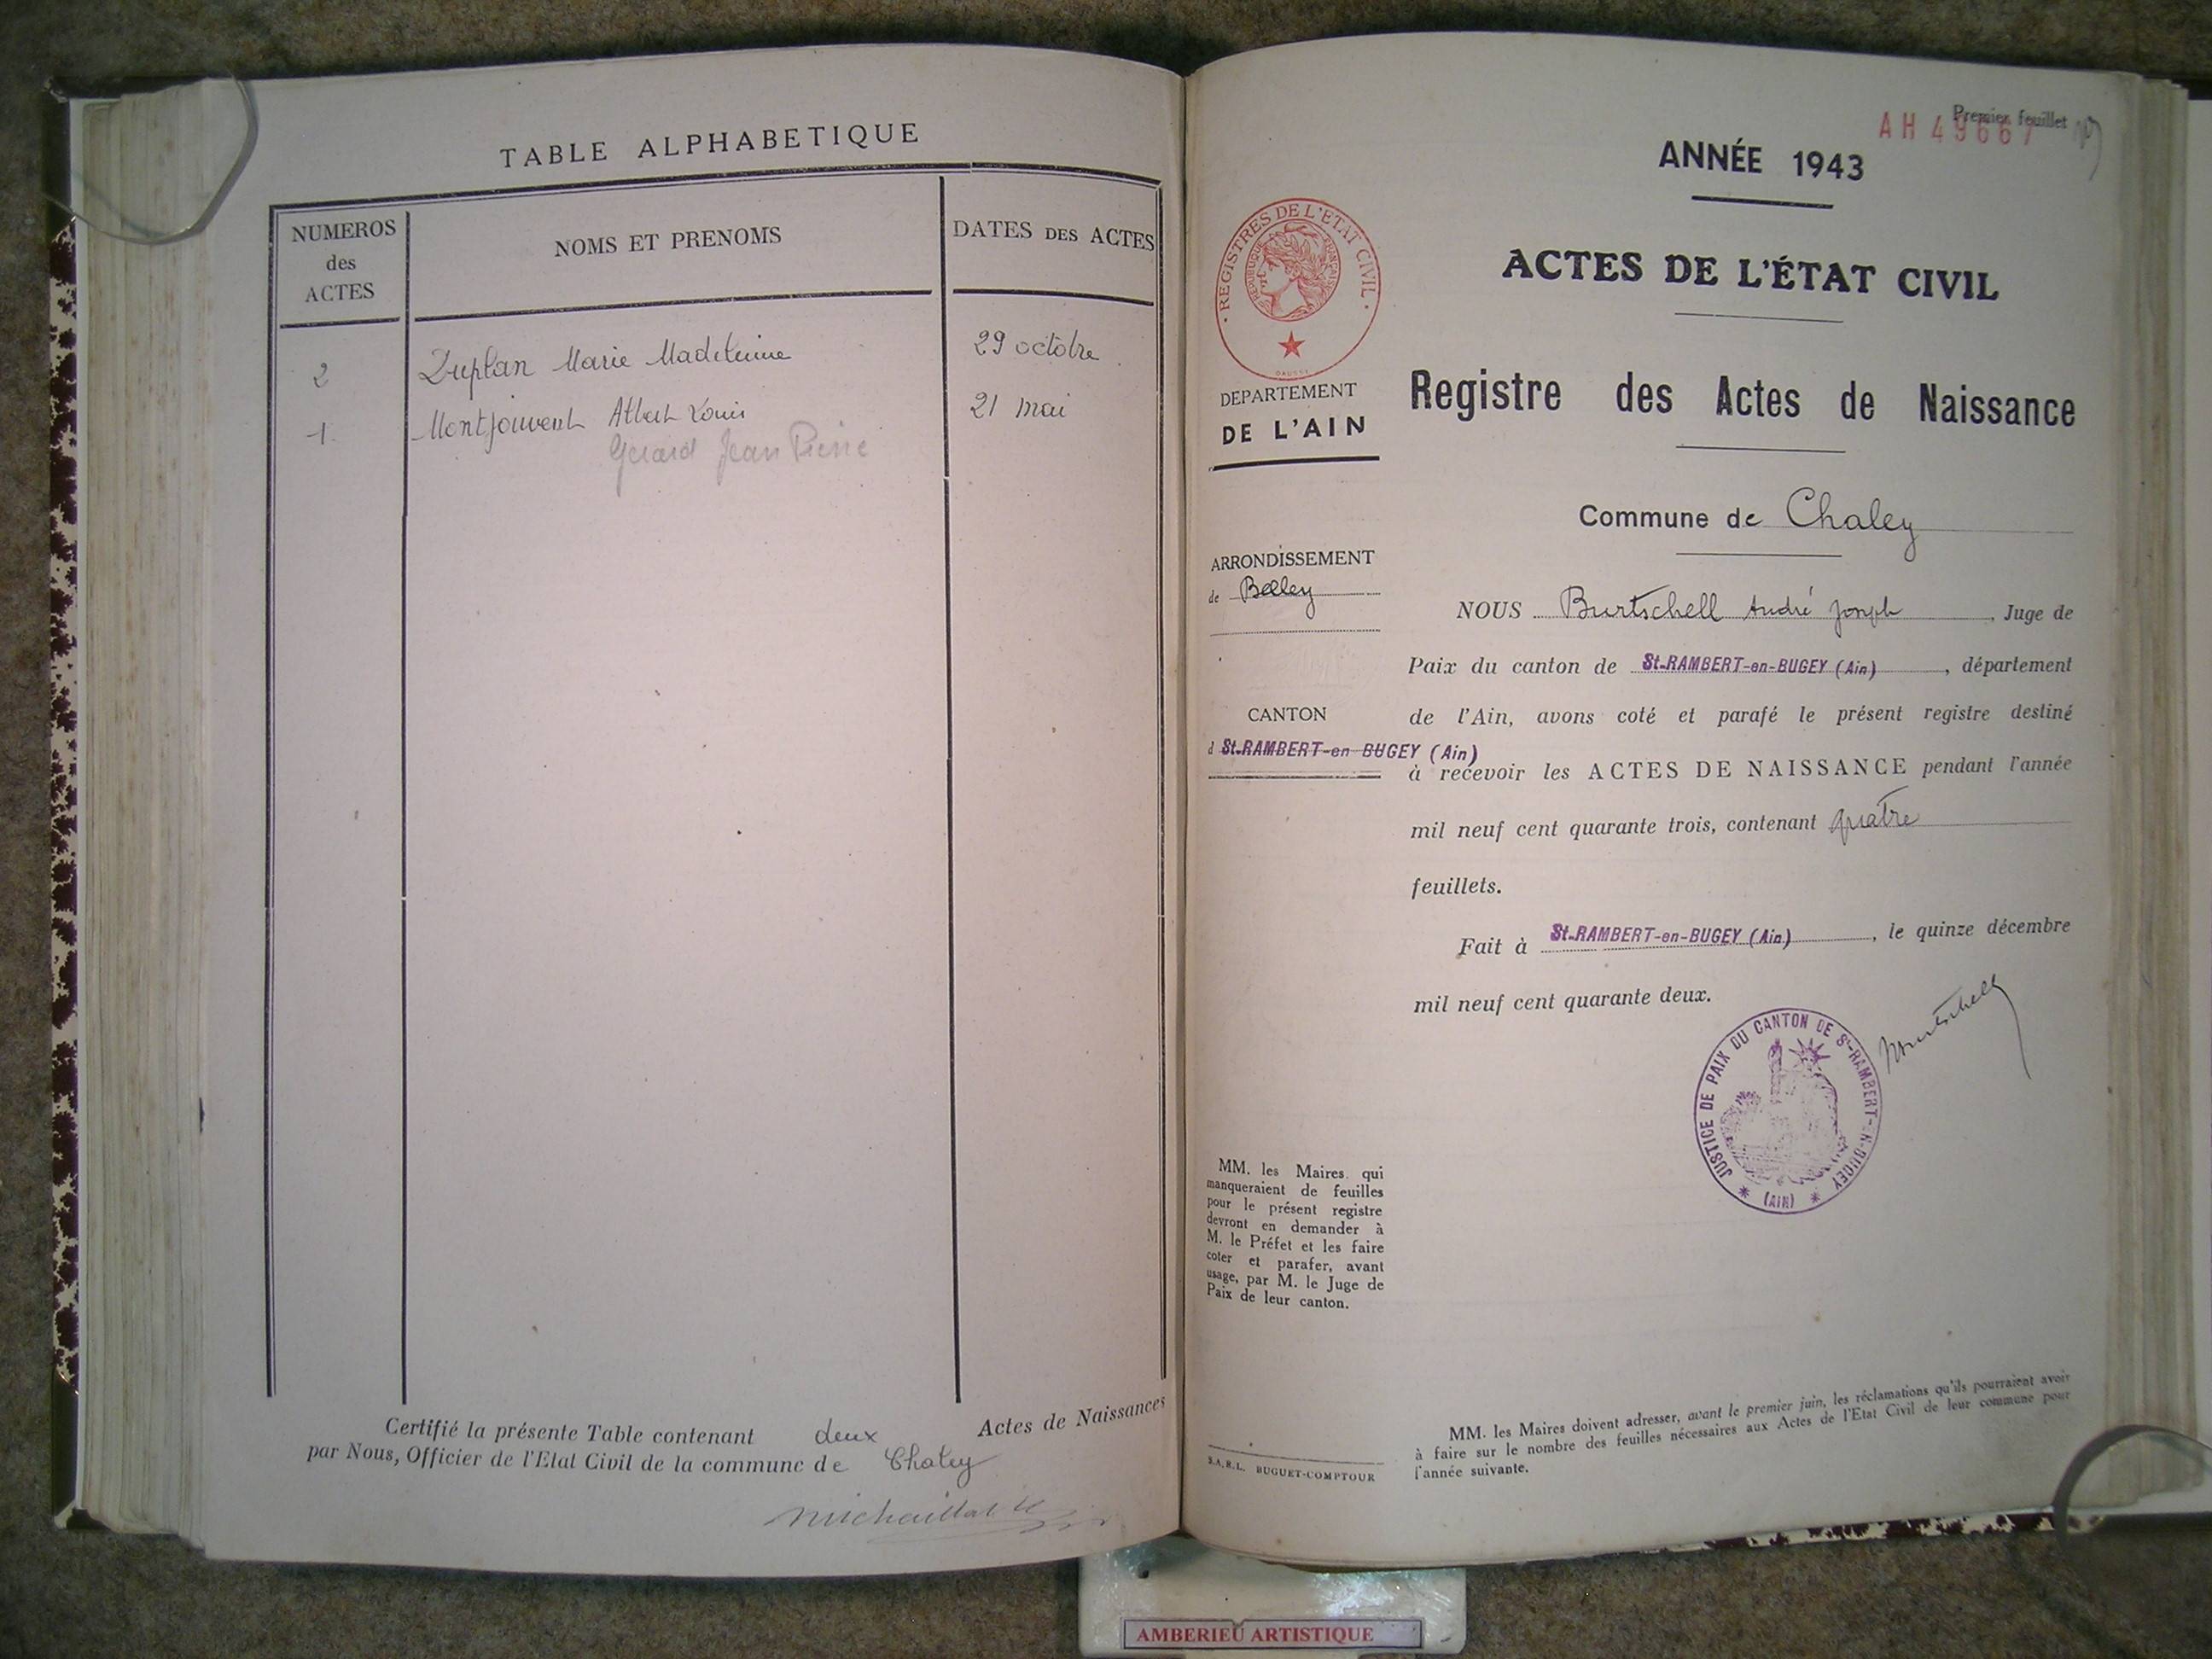 TABLE ALPHABETIQUE
NUMEROS
des
ACTES
NOMS ET PRENOMS
DATES DES ACTES
2 Duplan Marie Madeleine 29 octobre
1 Montjouvent Albert Louis 21 mai
Gérard Jean Pierre
Certifié la présente Table contenant deux Actes de Naissances
par Nous, Officier de l'Etat Civil de la commune de Chaley
Premier feuillet
AH 49667
ANNÉE 1943
REGISTRES DE L'ETAT CIVIL
REPUBLIQUE FRANÇAISE
DEPARTEMENT
DE L'AIN
ARRONDISSEMENT
de Belley
CANTON
d St-RAMBERT-en-BUGEY (Ain)
MM. les Maires qui
manqueraient de feuilles
pour le présent registre
devront en demander à
M. le Préfet et les faire
coter et parafer, avant
usage, par M. le Juge de
Paix de leur canton.
S.A.R.L. BUGUET-COMPTOUR
ACTES DE L'ÉTAT CIVIL
Registre des Actes de Naissance
Commune de Chaley
NOUS Burtschell André Joseph, Juge de
Paix du canton de St-RAMBERT-en-BUGEY (Ain), département
de l'Ain, avons coté et parafé le présent registre destiné
à recevoir les ACTES DE NAISSANCE pendant l'année
mil neuf cent quarante trois, contenant quatre
feuillets.
Fait à St-RAMBERT-en-BUGEY (Ain), le quinze décembre
mil neuf cent quarante deux.
Burtschell
JUSTICE DE PAIX DU CANTON DE St-RAMBERT-EN-BUGEY
(AIN)
MM. les Maires doivent adresser, avant le premier juin, les réclamations qu'ils pourraient avoir
à faire sur le nombre des feuilles nécessaires aux Actes de l'Etat Civil de leur commune pour
l'année suivante.
AMBERIEU ARTISTIQUE